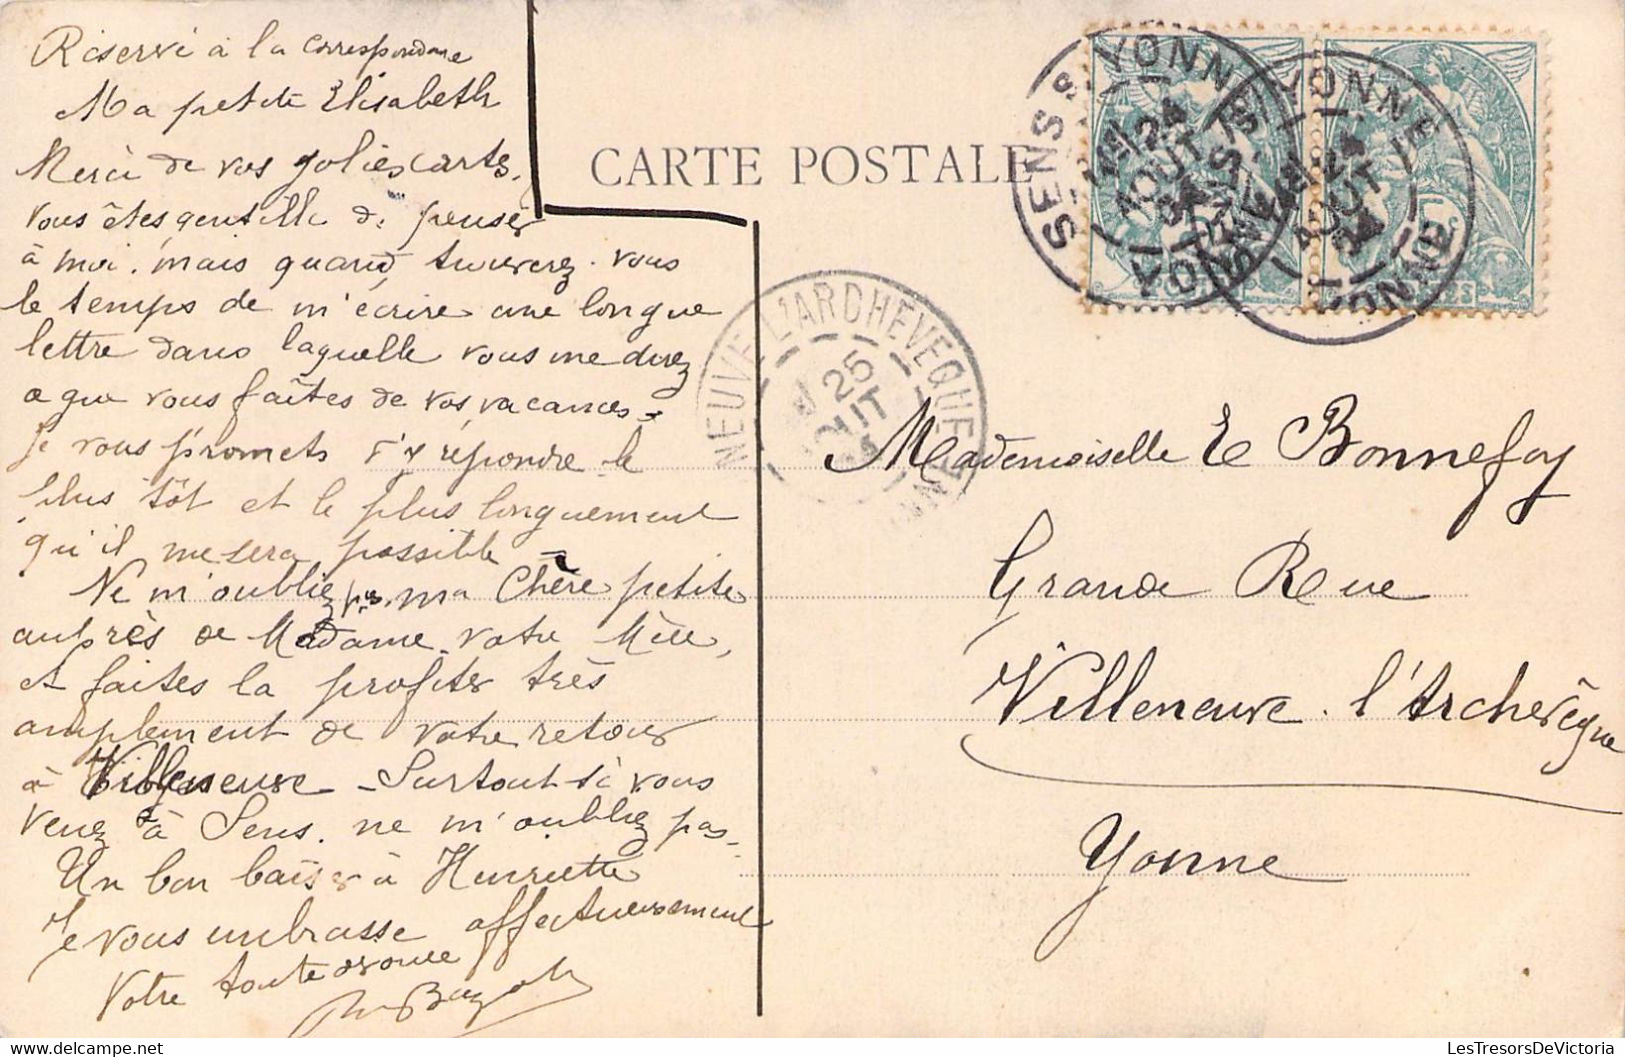 Réservé à la correspondance
Ma petite Elisabeth
Merci de vos jolies cartes,
vous êtes gentille de penser
à moi, mais quand trouverez-vous
le temps de m'écrire une longue
lettre dans laquelle vous me direz
ce que vous faîtes de vos vacances -
Je vous promets d'y répondre le
plus tôt et le plus longuement
qu'il me sera possible -
Ne m'oubliez pas, ma Chère petite
auprès de Madame votre Mère,
et faites la profiter très
amplement de votre retour
à Villeneuve - Surtout si vous
venez à Sens. ne m'oubliez pas -
Un bon baiser à Henriette
Je vous embrasse affectueusement
Votre toute dévouée
CARTE POSTALE
SENS YONNE
24
AOUT
SENS YONNE
24
AOUT
NEUVE L'ARCHEVEQUE
25
AOUT
YONNE
Mademoiselle E Bonnefoy
Grande Rue
Villeneuve-l'Archevêque
Yonne
LesTresorsDeVictoria